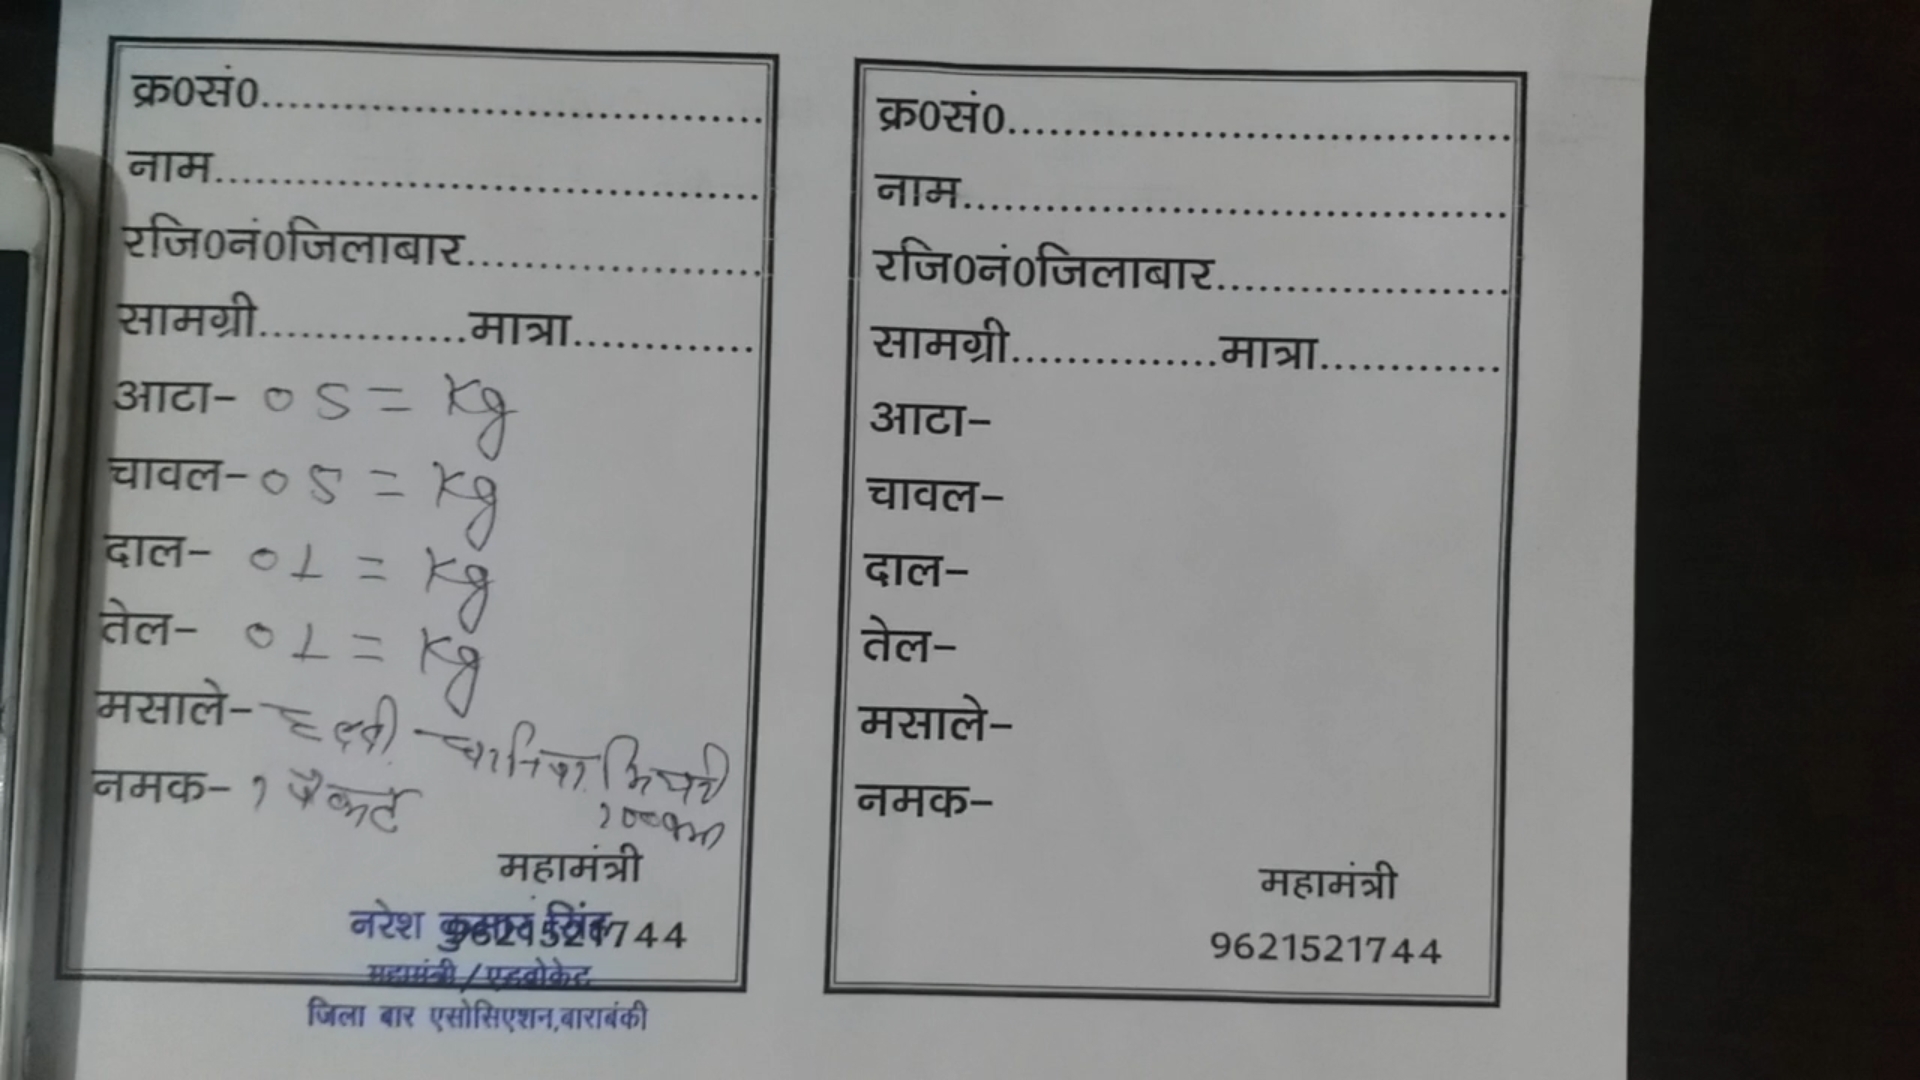 क्र0सं0....................................
नाम.......................................
रजि0नं0जिलाबार.....................
सामग्री...............मात्रा.............
आटा- 05 = Kg
चावल- 05 = Kg
दाल- 01 = Kg
तेल- 01 = Kg
मसाले- हल्दी
नमक- 1 पैकेट
महामंत्री
9621521744
नरेश कुमार सिंह
महामंत्री/एडवोकेट
जिला बार एसोसिएशन,बाराबंकी
क्र0सं0....................................
नाम.......................................
रजि0नं0जिलाबार.....................
सामग्री...............मात्रा.............
आटा-
चावल-
दाल-
तेल-
मसाले-
नमक-
महामंत्री
9621521744